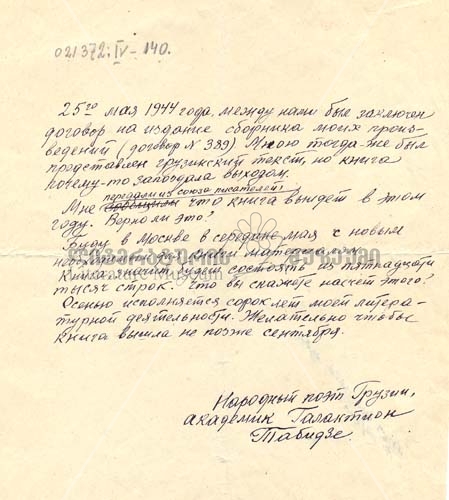 021372:IV-140.
25го мая 1944 года, между нами был заключен
договор на издание сборника моих произ-
ведений (договор № 389). Мною тогда-же был
представлен грузинский текст, но книга
почему-то запоздала выходом.
передали из союза писателей:
Мне что книга выйдет в этом
году. Верно ли это?
Буду в Москве в середине мая с новым
книги
Книга значит будет состоять из пятнадцати
тысяч строк. Что вы скажете насчет этого?
Осенью исполняется сорок лет моей литера-
турной деятельности. Желательно чтобы
книга вышла не позже сентября.
Народный поэт Грузии,
академик Галактион
Табидзе.